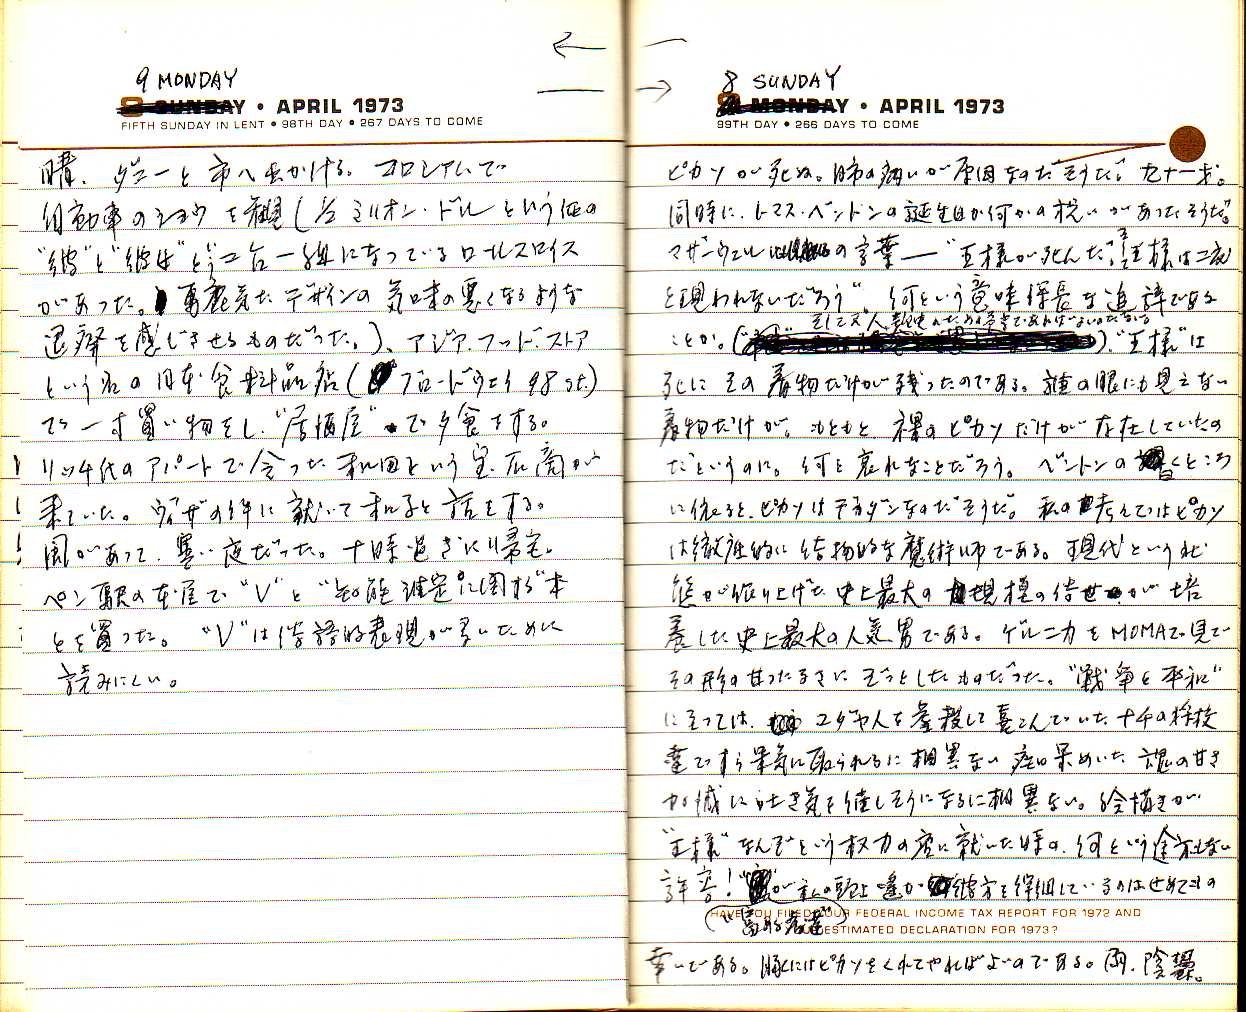 9 MONDAY
SUNDAY • APRIL 1973
FIFTH SUNDAY IN LENT • 98TH DAY • 267 DAYS TO COME
晴、ジューと市へ出かける。コロシアムで
自動車のショウを観(1/2ミリオン・ドルという値の
"彼"と"彼女"と二台一組になっているロールスロイス
があった。デザインの気味の悪くなるような
退廃を感じさせるものだった。)、アジア・フッド・ストア
という名の日本食料品店(ブロードウェイ98 st.)
で一寸買い物をし、"居酒屋"で夕食をする。
リッチ代のアパートで会った和田という宝石商が
来ていた。ヴィザの件に就いて和子と話をする。
風があって、寒い夜だった。十時過ぎに帰宅。
ペン駅の本屋で"V"と"知能測定に関する"本
とを買った。"V"は俗語的表現が多いために
読みにくい。
8 SUNDAY
MONDAY • APRIL 1973
99TH DAY • 266 DAYS TO COME
ピカソが死ぬ。肺の病いが原因なのだそうだ。九十一才。
同時に、トマス・ベントンの誕生日か何かの祝いがあったそうだ。
マザウェルの言葉—"王様が死んだ。王様は二度
と現われないだろう" 何という意味深長な追悼である
ことか。"王様"は
死にその着物だけが残ったのである。誰の眼にも見えない
着物だけが。もともと、裸のピカソだけが存在していたの
だというのに。何と哀れなことだろう。ベントンの書くところ
に依ると、ピカソはデカダンなのだそうだ。私の考えではピカソ
は徹底的に俗物的な魔術師である。現代という状
態が作り上げた史上最大の規模の俗世が培
養した史上最大の人気男である。ゲルニカをMOMAで見て
その形の甘ったるさにぞっとしたものだった。"戦争と平和"
に至っては、ユダヤ人を虐殺して喜こんでいたナチの将校
達ですら呆気に取られるに相異ない 魂の甘さ
加減に吐き気を催しそうになるに相異ない。絵描きが
"王様"なんぞという権力の座に就いた時の、何という途方もない
誹謗!が私の頭上遥か彼方を徘徊しているのはせめてもの
HAVE YOU FILED YOUR FEDERAL INCOME TAX REPORT FOR 1972 AND
ESTIMATED DECLARATION FOR 1973?
幸いである。豚にはピカソをくれてやればよいのである。雨、陰鬱。